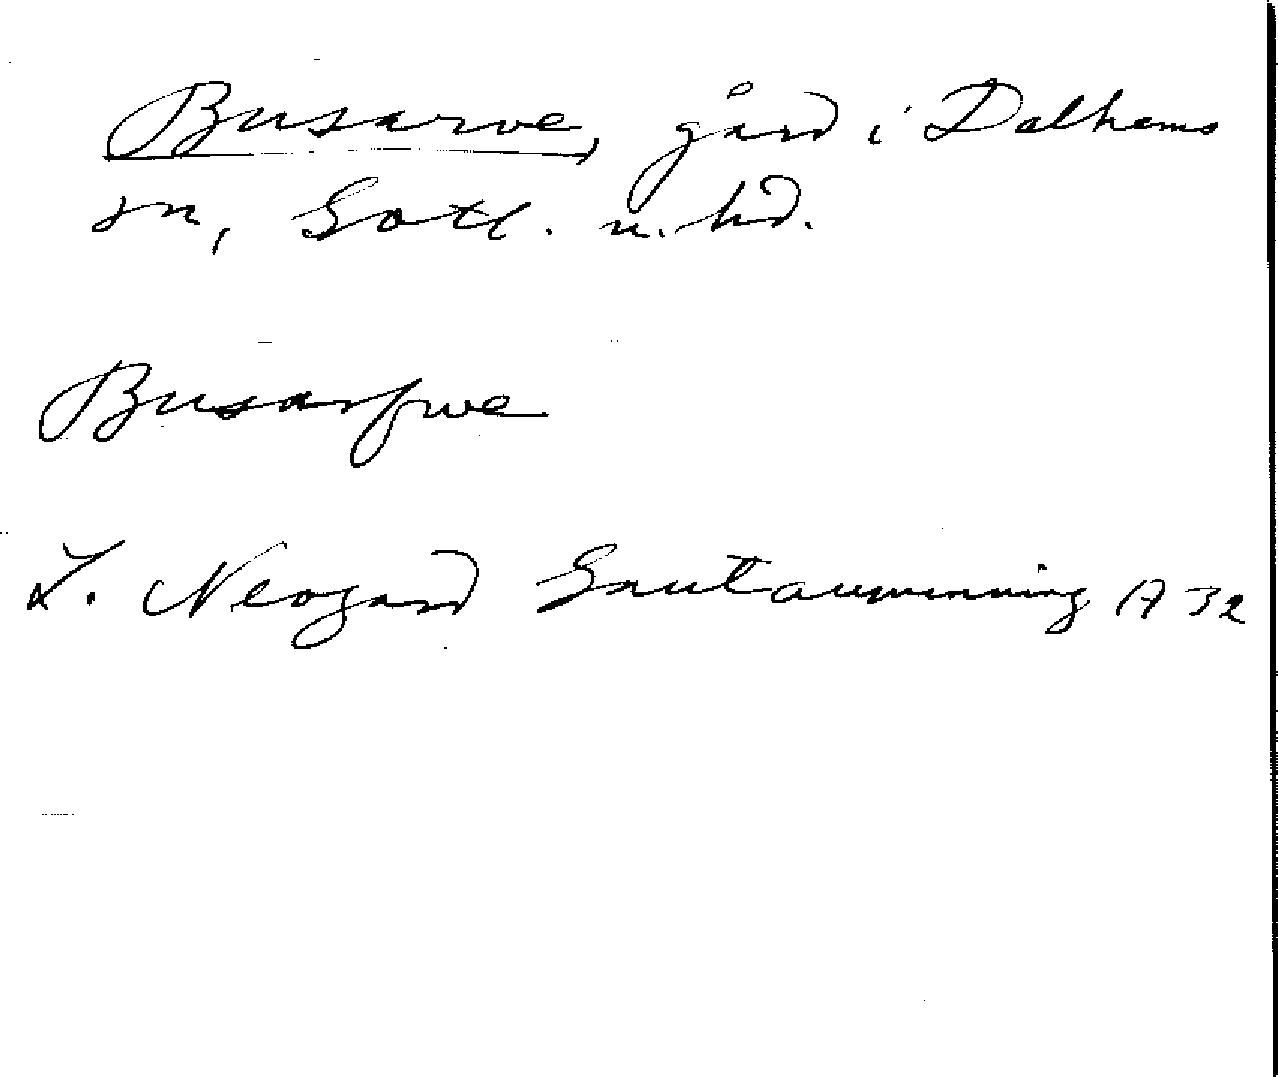 Busarve, gård i Dalhems
sn, Gotl. n. hd.
Busarfwe
L. Neogard Gautauminning A 32